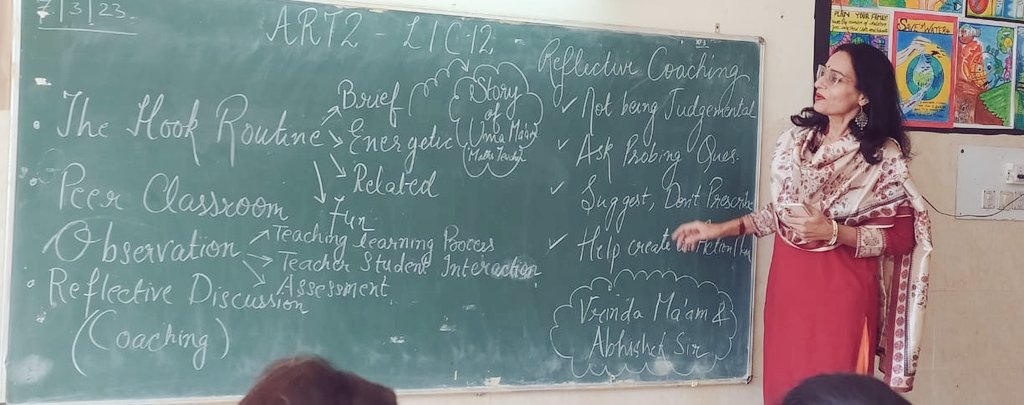 7/3/23.
ART2 - LIC-12
• The Hook Routine
Brief
Energetic
Related
Fun
Story
of
Uma Ma'am
Maths Teacher
• Peer Classroom
Observation
Teaching learning Process
Teacher Student Interaction
Assessment
• Reflective Discussion
(Coaching)
Reflective Coaching
✓ Not being Judgemental
✓ Ask Probing Ques.
✓ Suggest, Don't Prescribe
✓ Help create
Vrinda Ma'am &
Abhishek Sir
PLAN YOUR FAMILY
SAVE WATER